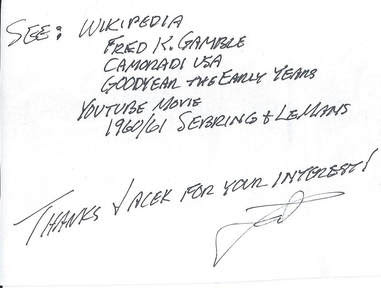 SEE: WIKIPEDIA
FRED K. GAMBLE
CAMORADI USA
GOODYEAR THE EARLY YEARS
YOUTUBE MOVIE
1960/61 SEBRING & LEMANS
THANKS JACEK FOR YOUR INTEREST!